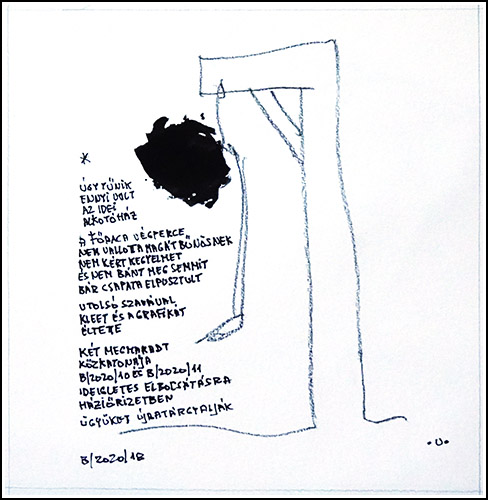 *
ÚGY TŰNIK
ENNYI VOLT
AZ IDEI
ALKOTÓHÁZ
A FŐPACA VÉGPERCE
NEM VALLOTTA MAGÁT BŰNÖSNEK
NEM KÉRT KEGYELMET
ÉS NEM BÁNT MEG SEMMIT
BÁR CSAPATA ELPUSZTULT
UTOLSÓ SZAVÁVAL
KLEET ÉS A GRAFIKÁT
ÉLTETTE
KÉT MEGMARADT
KÖZKATONÁJA
B/2020/10 ÉS B/2020/11
IDEIGLETES ELBOCSÁTÁSRA
HÁZIŐRIZETBEN
ÜGYÜKET ÚJRATÁRGYALJÁK
B/2020/18
•U•